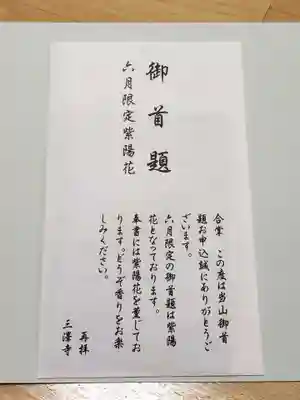 御首題
六月限定紫陽花
合掌 この度は当山御首
題お申込誠にありがとうご
ざいます。
六月限定の御首題は紫陽
花となっております。
奉書には紫陽花を薫じてお
ります。どうぞ香りをお楽
しみください。
再拝
三澤寺